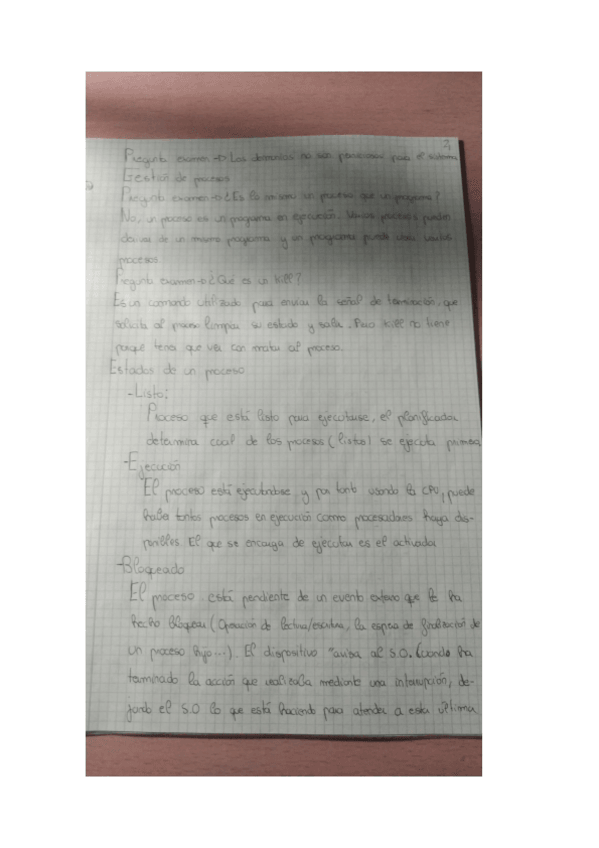 2
Pregunta examen → Los demonios no son perniciosos para el sistema
Gestión de procesos
Pregunta examen → ¿Es lo mismo un proceso que un programa?
No, un proceso es un programa en ejecución. Varios procesos pueden
derivar de un mismo programa y un programa puede usar varios
procesos.
Pregunta examen → ¿Qué es un Kill?
Es un comando utilizado para enviar la señal de terminación, que
solicita al proceso limpiar su estado y salir. Pero Kill no tiene
porque tener que ver con matar al proceso.
Estados de un proceso
-Listo:
Proceso que está listo para ejecutarse, el planificador
determina cual de los procesos (listos) se ejecuta primero
-Ejecución
El proceso está ejecutándose y por tanto usando la CPU, puede
haber tantos procesos en ejecución como procesadores haya dis-
ponibles. El que se encarga de ejecutar es el activador
-Bloqueado
El proceso está pendiente de un evento externo que le ha
hecho Bloquear (Operación de lectura/escritura, la espera de finalización de
un proceso hijo...). El dispositivo "avisa al S.O. Cuando ha
terminado la acción que realizaba mediante una interrupción, de-
jando el S.O lo que está haciendo para atender a esta última